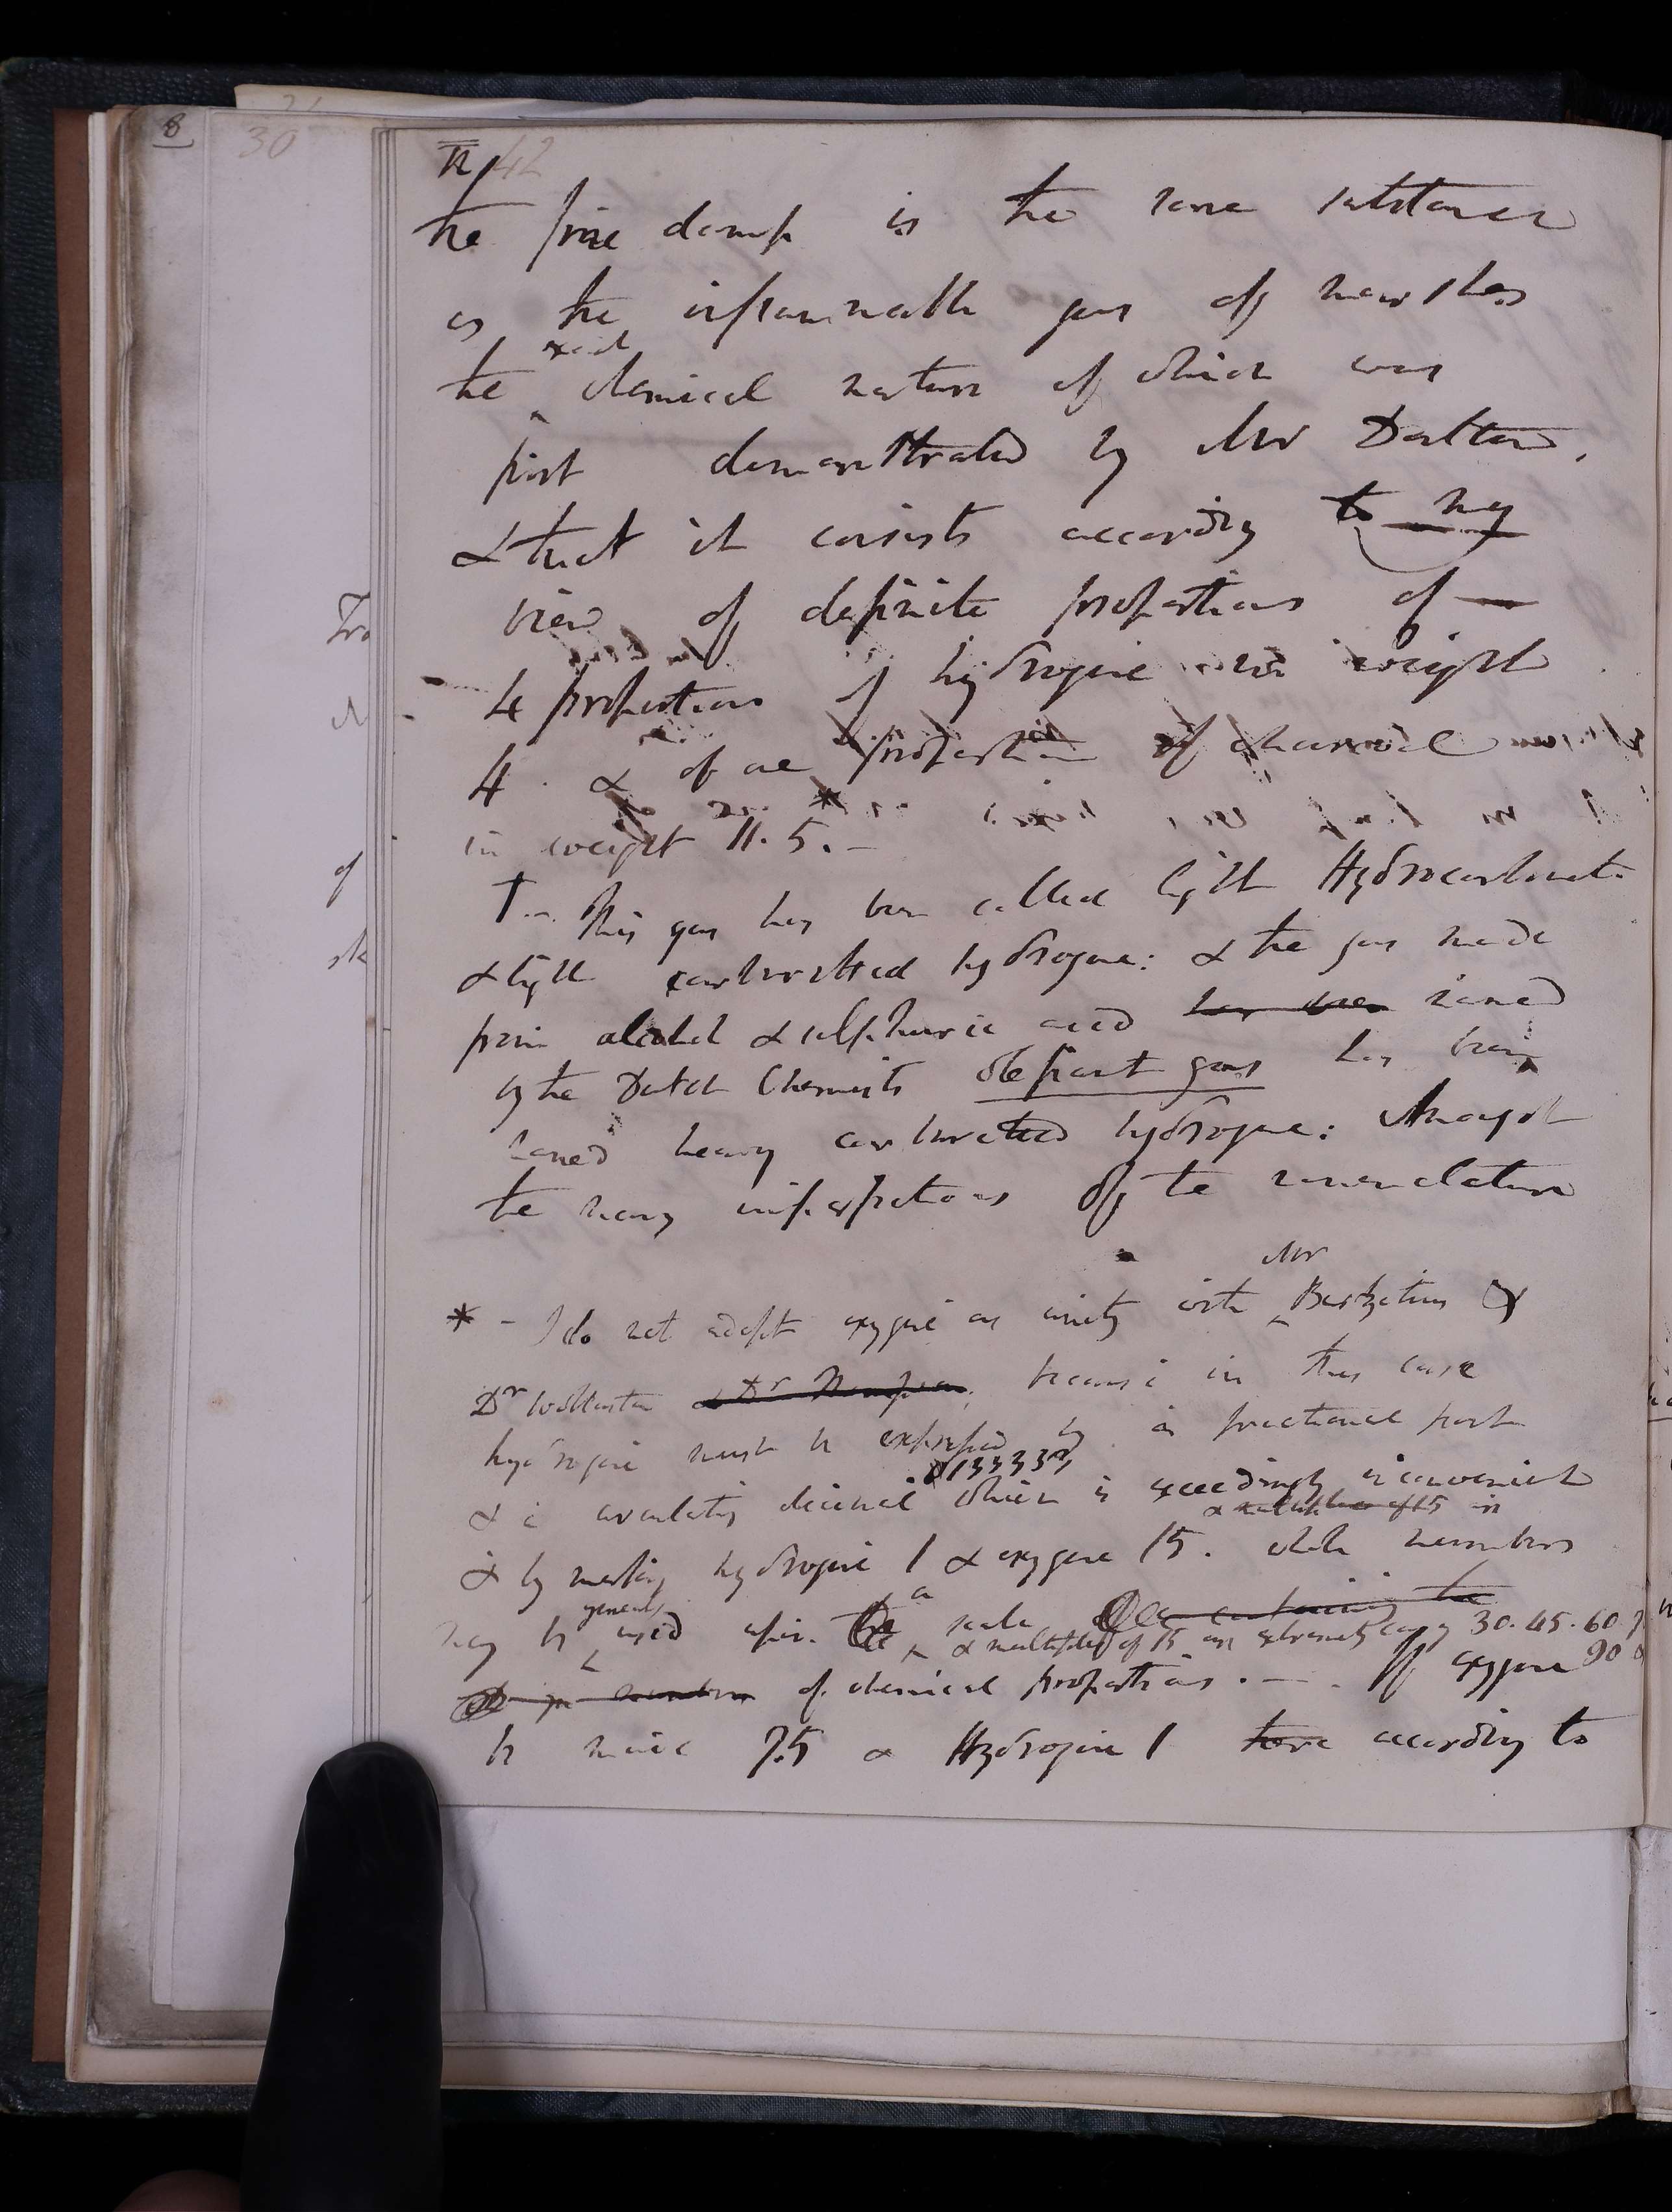 8
30
12/ 42
the fire damp is the same substance
as the inflammable gas of marshes
exact
the chemical nature of which was
first demonstrated by Mr Dalton,
& that it consists according to my
view of definite proportions of
4 proportions of hydrogene in weight
4. & of one proportion of charcoal
in weight 11.5. — *
† — This gas has been called light Hydrocarbonate
& light carburetted hydrogene: & the gas made
from alcohol & sulphuric acid has been named
by the Dutch Chemists olefiant gas has been
named heavy carburetted hydrogene: Amongst
the many imperfections of the nomenclature
Mr
* – I do not adopt oxygene as unity with Berzelius &
Dr Wollaston & Dr Thompson, because in this case
hydrogene must be expressed by a fractional part
.133333,
& a circulating decimal which is exceedingly inconvenient
& multiples of 15 are
& by making hydrogene 1 & oxygene 15. whole numbers
generally
may be used upon the a scale
& multiples of 15 are extremely easy 30. 45. 60
90
of chemical proportions. — If oxygene
be made 7.5 & Hydrogene 1 there according to
Tro
of